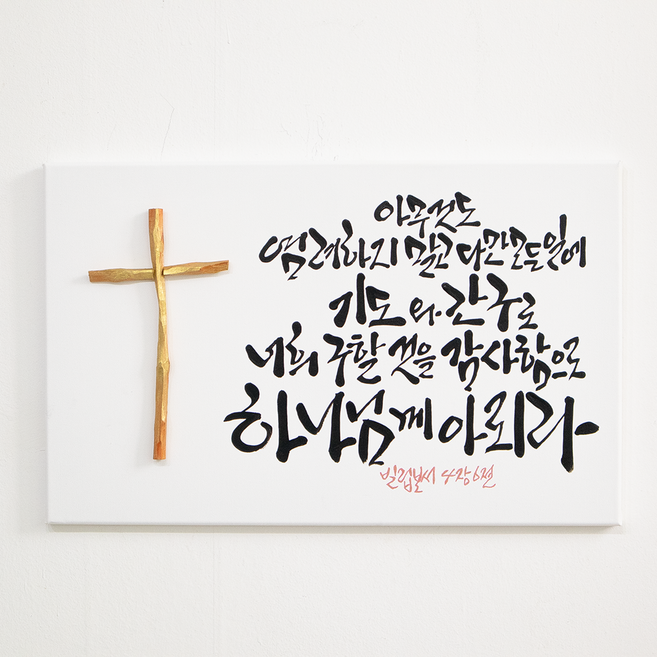 아무것도
염려하지 말고 다만 모든 일에
기도와 간구로
너희 구할 것을 감사함으로
하나님께 아뢰라
빌립보서 4장 6절